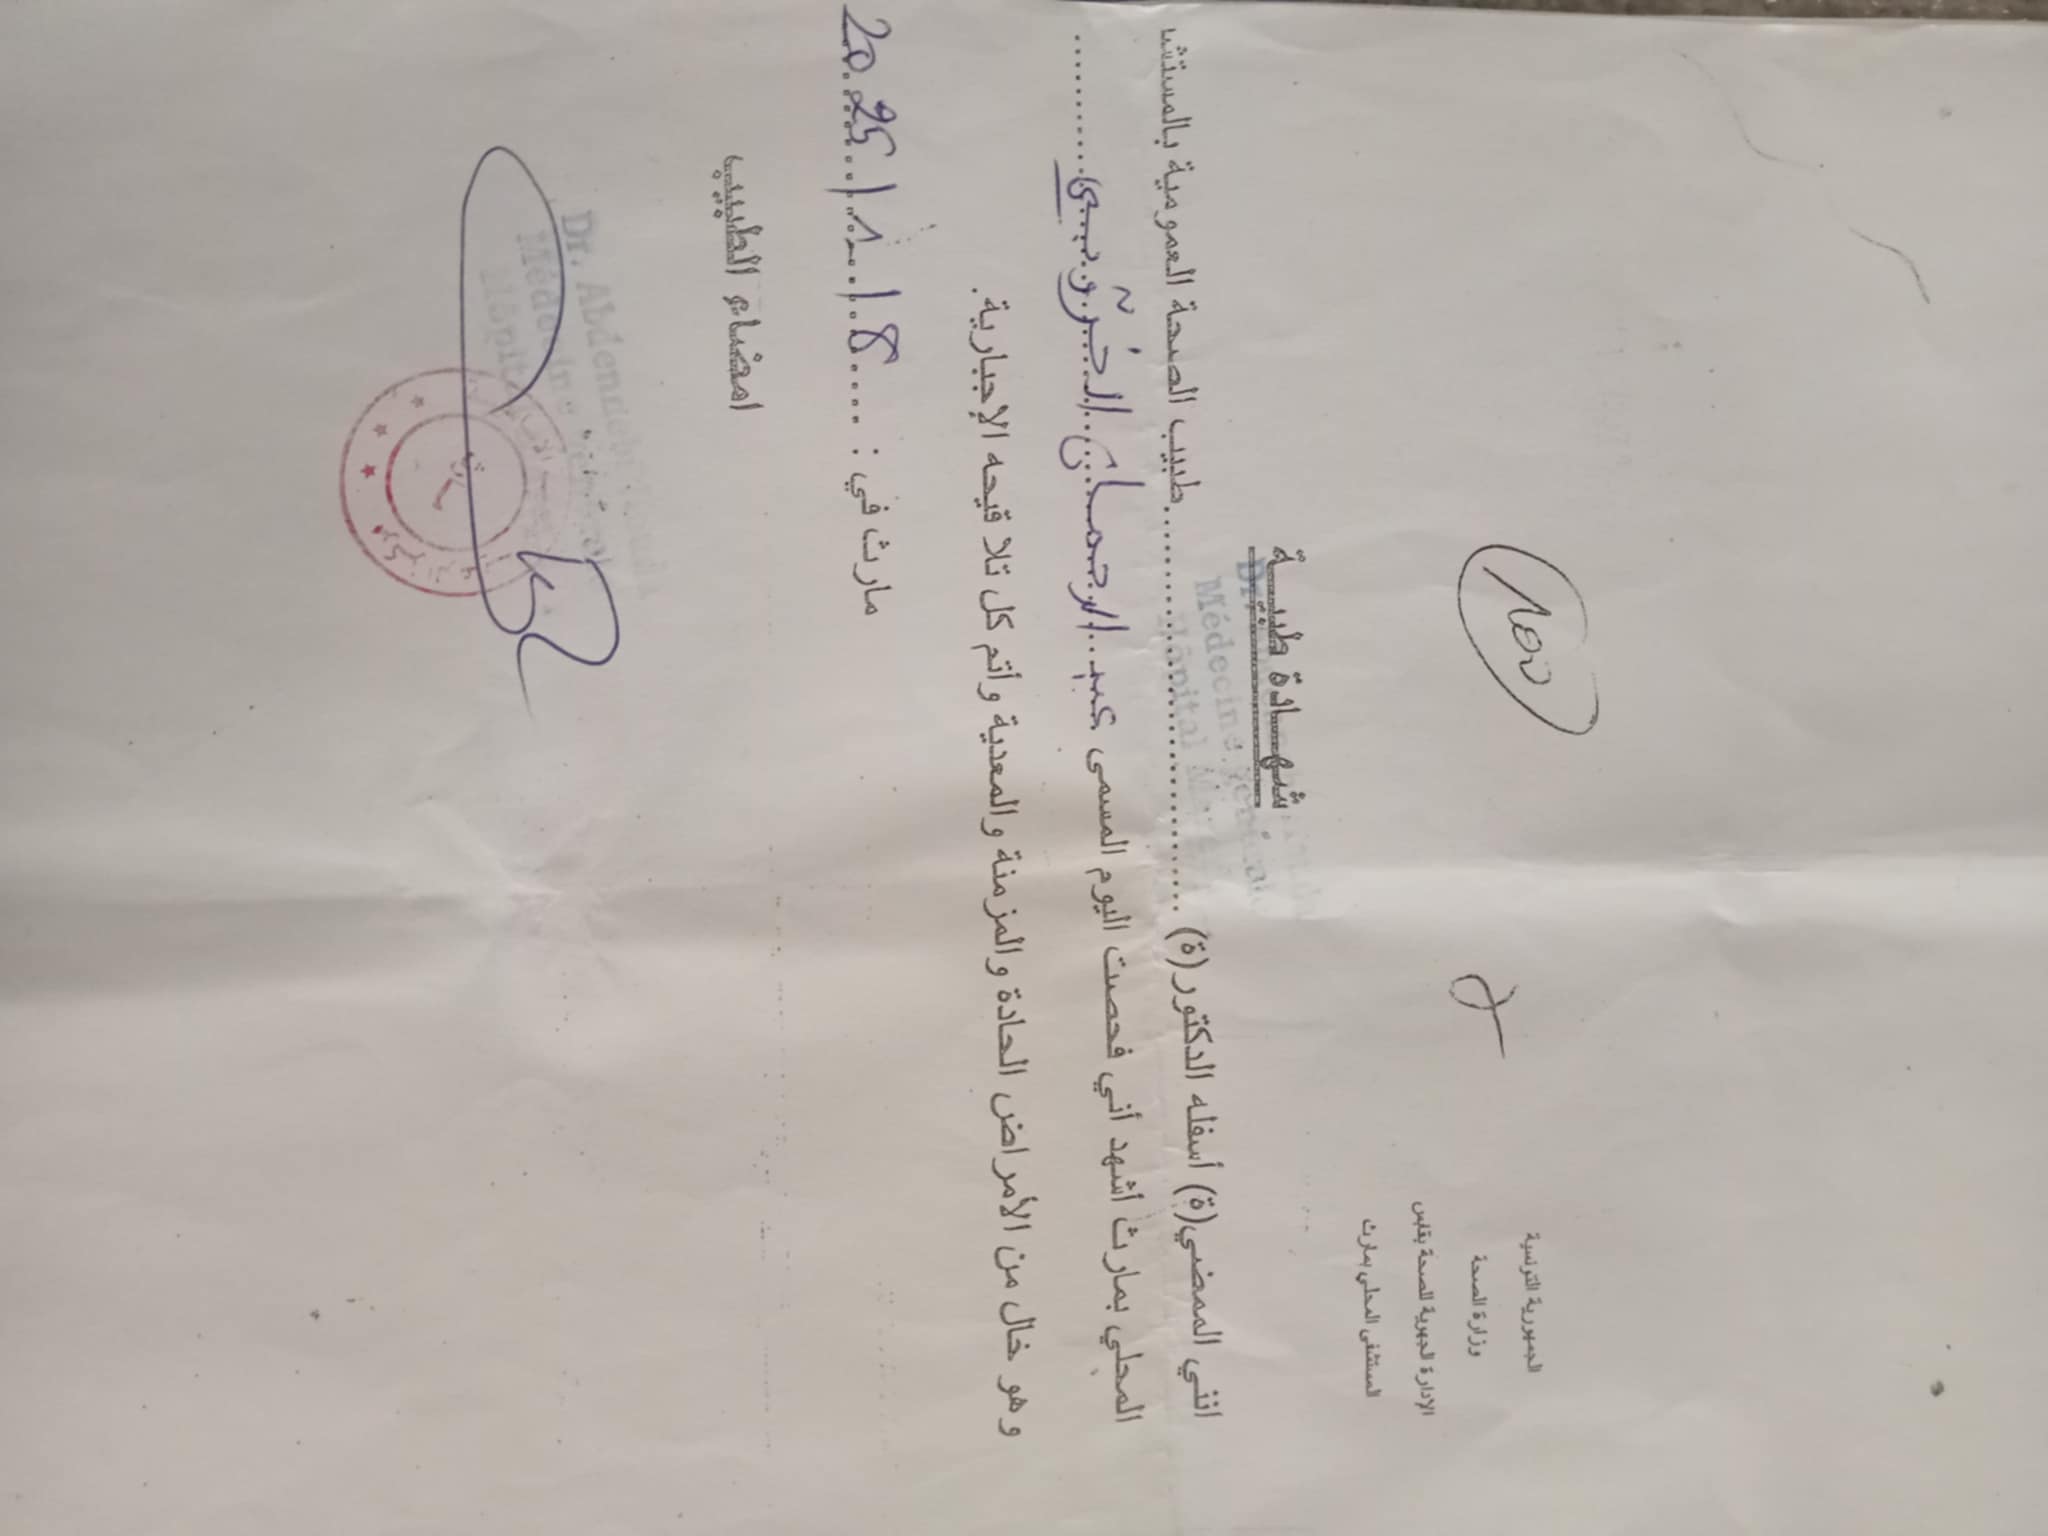 الجمهورية التونسية
وزارة الصحة
الإدارة الجهوية للصحة بقابس
المستشفى المحلي بمارث
شهــادة طبيــة
Médecine
Hôpital
انني الممضي(ة) أسفله الدكتور(ة) ........................................ طبيب الصحة العمومية بالمستشـ
المحلي بمارث أشهد أني فحصت اليوم المسمى عبد الرحمان
وهو خال من الأمراض الحادة والمزمنة والمعدية وأتم كل تلاقيحه الإجبارية.
مارث في : 2025/1/8
امضاء الطبيب
Dr.
Médecine
Hôpital